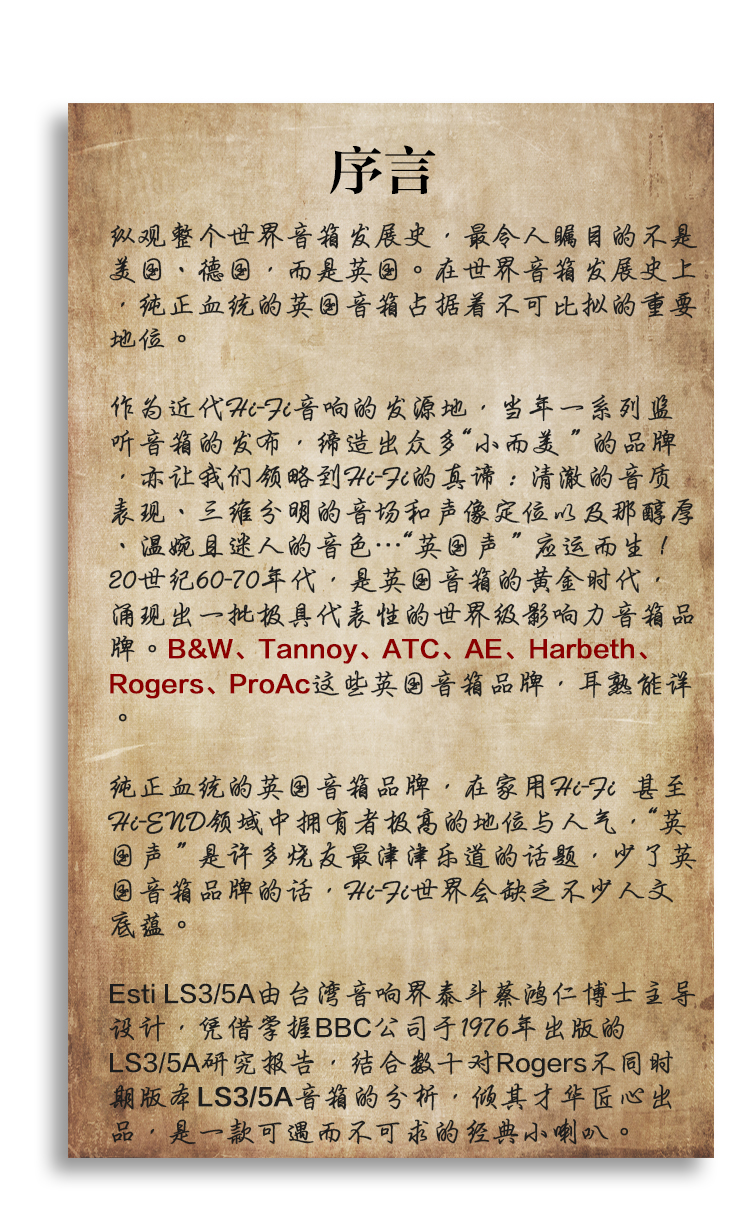 序言
纵观整个世界音箱发展史，最令人瞩目的不是
美国、德国，而是英国。在世界音箱发展史上
，纯正血统的英国音箱占据着不可比拟的重要
地位。
作为近代Hi-Fi音响的发源地，当年一系列监
听音箱的发布，缔造出众多“小而美”的品牌
，亦让我们领略到Hi-Fi的真谛：清澈的音质
表现、三维分明的音场和声像定位以及那醇厚
、温婉且迷人的音色…“英国声”应运而生！
20世纪60-70年代，是英国音箱的黄金时代，
涌现出一批极具代表性的世界级影响力音箱品
牌。B&W、Tannoy、ATC、AE、Harbeth、
Rogers、ProAc这些英国音箱品牌，耳熟能详
。
纯正血统的英国音箱品牌，在家用Hi-Fi 甚至
Hi-END领域中拥有者极高的地位与人气，“英
国声”是许多烧友最津津乐道的话题，少了英
国音箱品牌的话，Hi-Fi世界会缺乏不少人文
底蕴。
Esti LS3/5A由台湾音响界泰斗蔡鸿仁博士主导
设计，凭借掌握BBC公司于1976年出版的
LS3/5A研究报告，结合数十对Rogers不同时
期版本LS3/5A音箱的分析，倾其才华匠心出
品，是一款可遇而不可求的经典小喇叭。